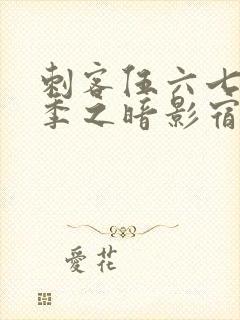 刺客伍六七
季之暗影宿
愛花